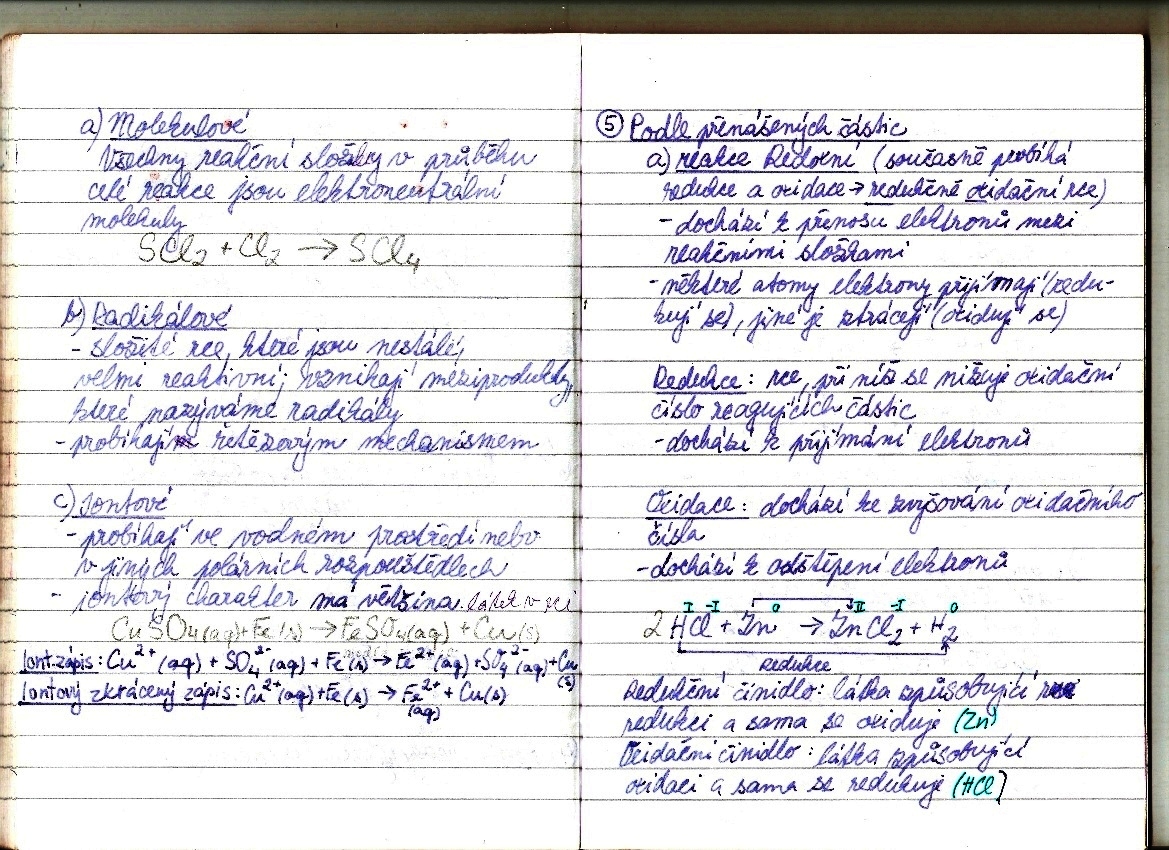 a) Molekulové
Všechny reakční složky v průběhu
celé reakce jsou elektroneutrální
molekuly
SCl₂ + Cl₂ → SCl₄
b) Radikálové
- složité rce, které jsou nestálé,
velmi reaktivní; vznikají meziprodukty,
které nazýváme radikály
- probíhají řetězovým mechanismem
c) Iontové
- probíhají ve vodném prostředí nebo
v jiných polárních rozpouštědlech
- iontový charakter má většina látek v
CuSO₄(aq) + Fe(s) → FeSO₄(aq) + Cu(s)
Iont. zápis: Cu²⁺(aq) + SO₄²⁻(aq) + Fe(s) → Fe²⁺(aq) + SO₄²⁻(aq) + Cu(s)
Iontový zkrácený zápis: Cu²⁺(aq) + Fe(s) → Fe²⁺(aq) + Cu(s)
⑤ Podle přenášených částic
a) reakce Redoxní (současně probíhá
redukce a oxidace → redukčně oxidační rce)
- dochází k přenosu elektronů mezi
reakčními složkami
- některé atomy elektrony přijímají (redu-
kují se), jiné je ztrácejí (oxidují se)
Redukce: rce, při níž se snižuje oxidační
číslo reagujících částic
- dochází k přijímání elektronů
Oxidace: dochází ke zvyšování oxidačního
čísla
- dochází k odštěpení elektronů
I -I 0 II -I 0
2HCl + Zn → ZnCl₂ + H₂
Redukce
Redukční činidlo: látka způsobující
redukci a sama se oxiduje (Zn)
Oxidační činidlo: látka způsobující
oxidaci a sama se redukuje (HCl)